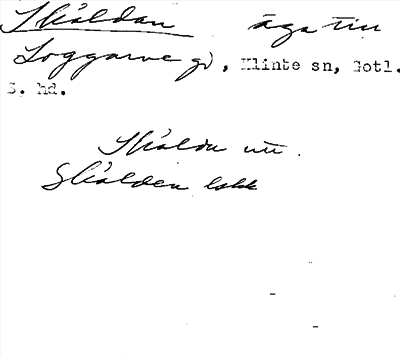 Skäldan äga till
Loggarve gd, Klinte sn, Gotl.
S. hd.
Skäldu utt.
Skälden lskk